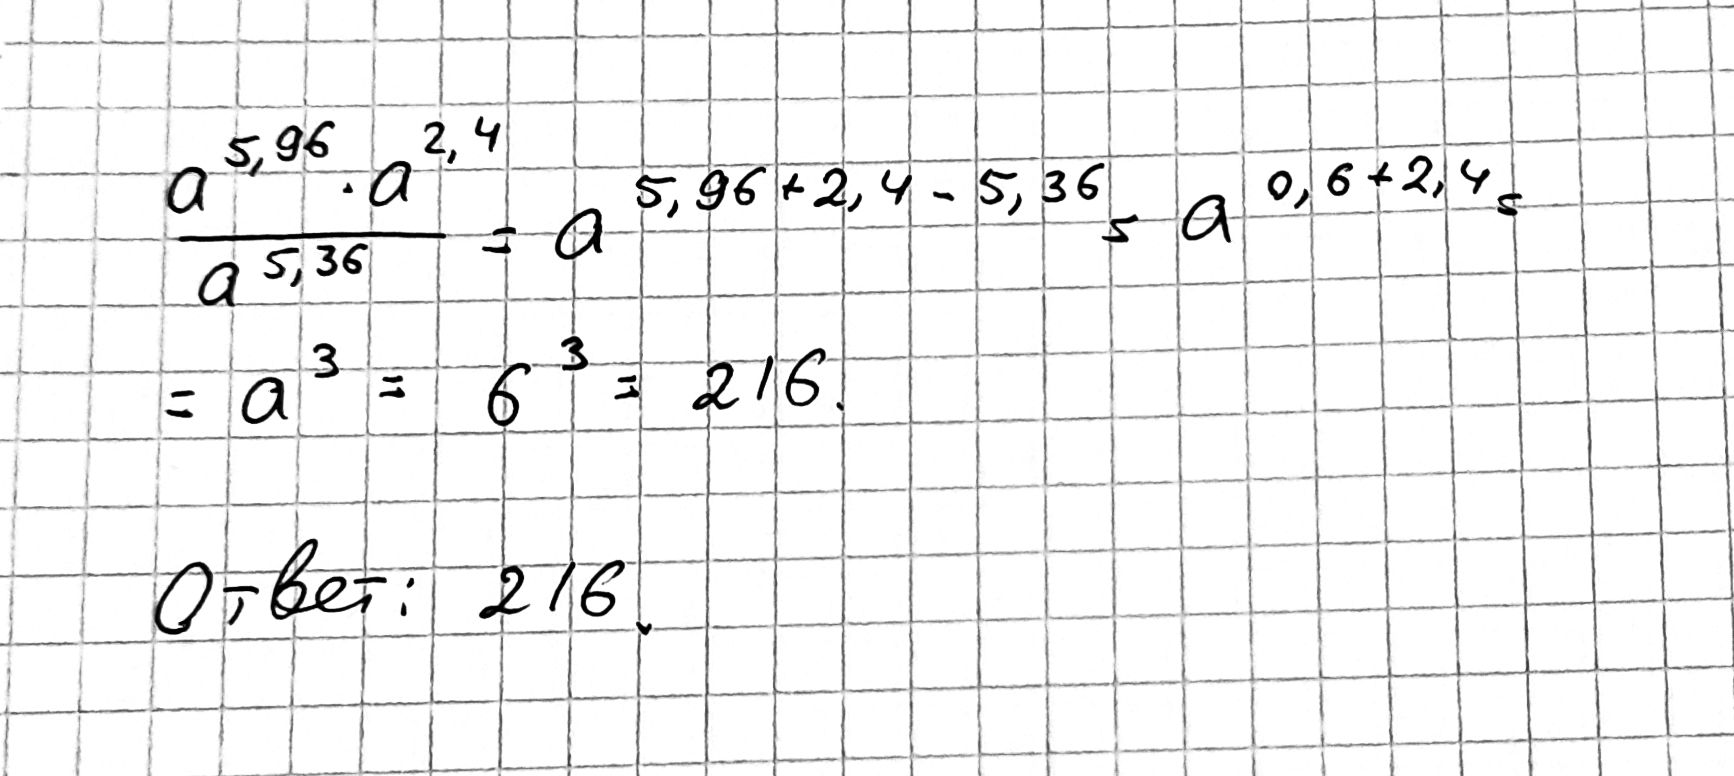 a^{5,96} · a^{2,4} / a^{5,36} = a^{5,96+2,4-5,36} = a^{0,6+2,4} =
= a^3 = 6^3 = 216.
Ответ: 216.